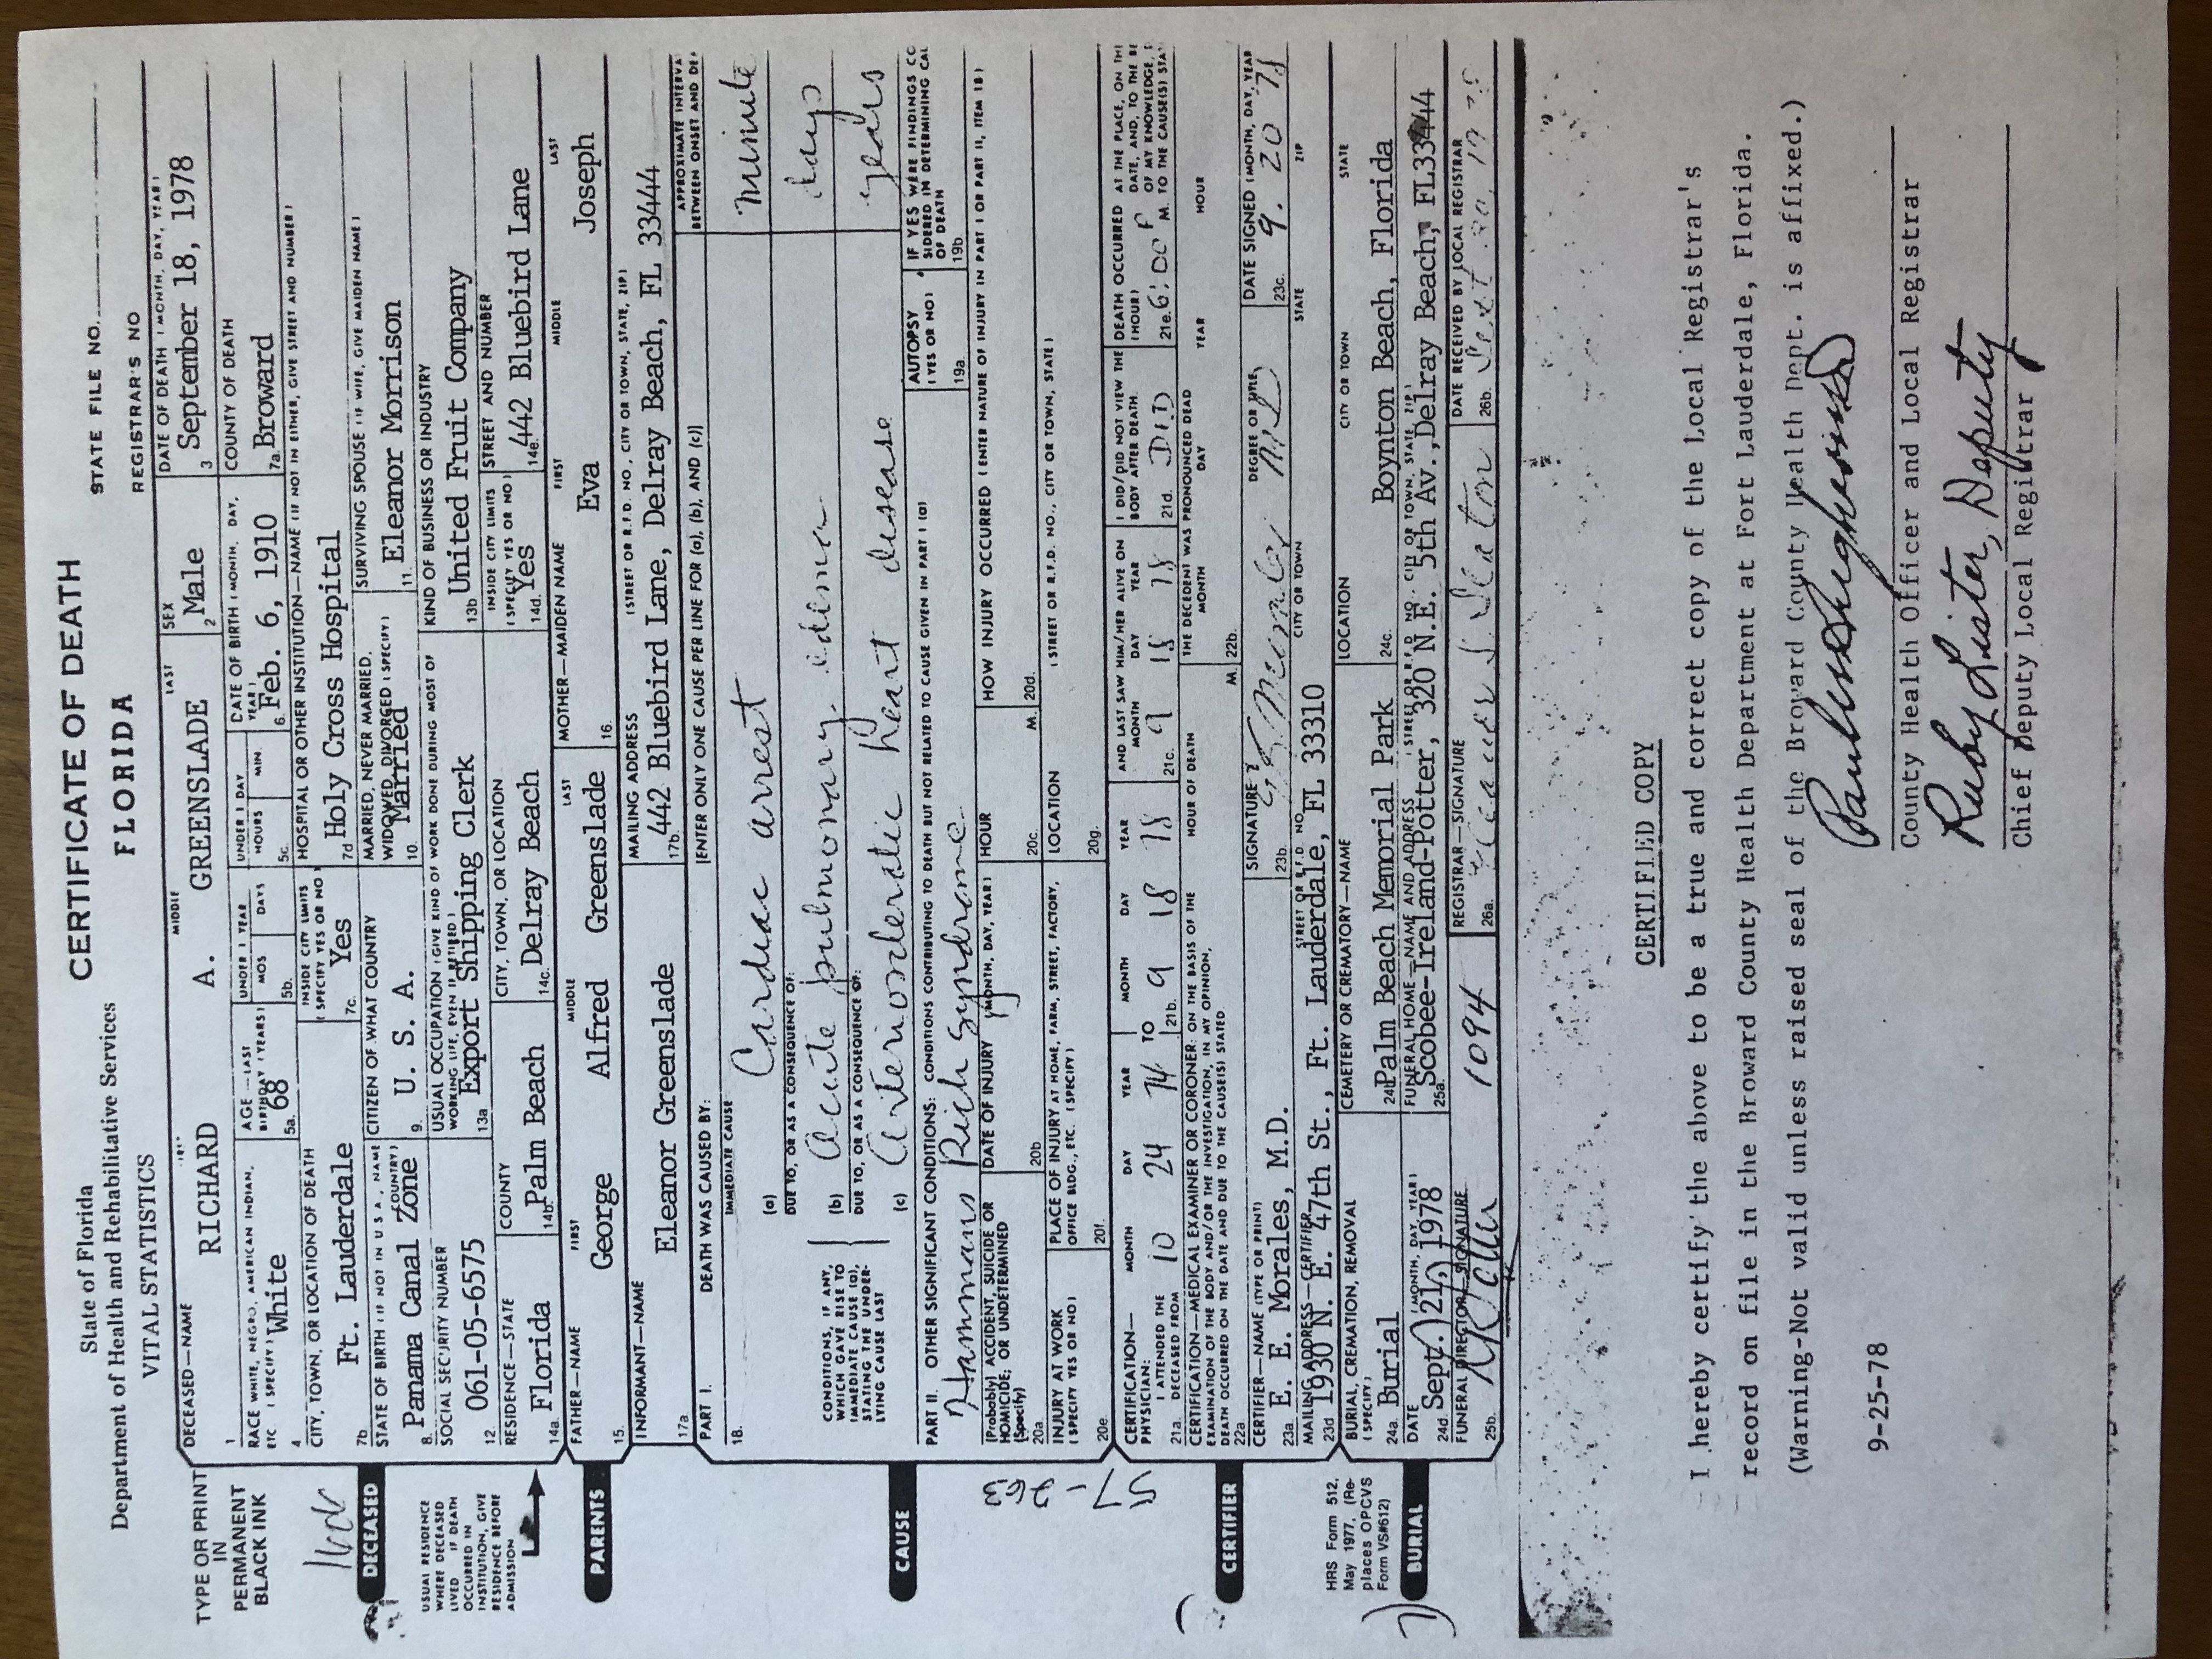 State of Florida
Department of Health and Rehabilitative Services
VITAL STATISTICS
CERTIFICATE OF DEATH
FLORIDA
STATE FILE NO.
REGISTRAR'S NO
TYPE OR PRINT
IN
PERMANENT
BLACK INK
DECEASED—NAME MIDDLE LAST
1 RICHARD A. GREENSLADE
SEX
2 Male
DATE OF DEATH (MONTH, DAY, YEAR)
3 September 18, 1978
RACE WHITE, NEGRO, AMERICAN INDIAN,
ETC. (SPECIFY)
4 White
AGE—LAST
BIRTHDAY (YEARS)
5a. 68
UNDER 1 YEAR
MOS DAYS
5b.
UNDER 1 DAY
HOURS MIN.
5c.
DATE OF BIRTH (MONTH, DAY,
YEAR)
6. Feb. 6, 1910
COUNTY OF DEATH
7a. Broward
CITY, TOWN, OR LOCATION OF DEATH
7b Ft. Lauderdale
INSIDE CITY LIMITS
(SPECIFY YES OR NO)
7c. Yes
HOSPITAL OR OTHER INSTITUTION—NAME (IF NOT IN EITHER, GIVE STREET AND NUMBER)
7d Holy Cross Hospital
DECEASED
STATE OF BIRTH (IF NOT IN U S A, NAME
COUNTRY)
8. Panama Canal Zone
CITIZEN OF WHAT COUNTRY
9. U. S. A.
MARRIED, NEVER MARRIED,
WIDOWED, DIVORCED (SPECIFY)
10. Married
SURVIVING SPOUSE (IF WIFE, GIVE MAIDEN NAME)
11. Eleanor Morrison
USUAL RESIDENCE
WHERE DECEASED
LIVED IF DEATH
OCCURRED IN
INSTITUTION, GIVE
RESIDENCE BEFORE
ADMISSION
SOCIAL SECURITY NUMBER
12. 061-05-6575
USUAL OCCUPATION (GIVE KIND OF WORK DONE DURING MOST OF
WORKING LIFE, EVEN IF RETIRED)
13a Export Shipping Clerk
KIND OF BUSINESS OR INDUSTRY
13b United Fruit Company
RESIDENCE—STATE
14a. Florida
COUNTY
14b. Palm Beach
CITY, TOWN, OR LOCATION
14c. Delray Beach
INSIDE CITY LIMITS
(SPECIFY YES OR NO)
14d. Yes
STREET AND NUMBER
14e. 442 Bluebird Lane
PARENTS
FATHER—NAME FIRST MIDDLE LAST
15. George Alfred Greenslade
MOTHER—MAIDEN NAME FIRST MIDDLE LAST
16. Eva Joseph
INFORMANT—NAME
17a Eleanor Greenslade
MAILING ADDRESS (STREET OR R.F.D. NO., CITY OR TOWN, STATE, ZIP)
17b. 442 Bluebird Lane, Delray Beach, FL 33444
PART I. DEATH WAS CAUSED BY: [ENTER ONLY ONE CAUSE PER LINE FOR (a), (b), AND (c)]
APPROXIMATE INTERVA
BETWEEN ONSET AND DE
18. IMMEDIATE CAUSE
(a) Cardiac arrest minute
DUE TO, OR AS A CONSEQUENCE OF:
(b) Acute pulmonary edema days
DUE TO, OR AS A CONSEQUENCE OF:
(c) Arteriosclerotic heart disease years
CONDITIONS, IF ANY,
WHICH GAVE RISE TO
IMMEDIATE CAUSE (a),
STATING THE UNDER-
LYING CAUSE LAST
CAUSE
PART II. OTHER SIGNIFICANT CONDITIONS: CONDITIONS CONTRIBUTING TO DEATH BUT NOT RELATED TO CAUSE GIVEN IN PART I (a)
Hammans Rich Syndrome
AUTOPSY
(YES OR NO)
19a.
IF YES WERE FINDINGS CO
SIDERED IN DETERMINING CAU
OF DEATH
19b.
57-263
(Probably) ACCIDENT, SUICIDE OR
HOMICIDE; OR UNDETERMINED
(Specify)
20a.
DATE OF INJURY (MONTH, DAY, YEAR)
20b
HOUR
20c. M.
HOW INJURY OCCURRED (ENTER NATURE OF INJURY IN PART I OR PART II, ITEM 18)
20d.
INJURY AT WORK
(SPECIFY YES OR NO)
20e.
PLACE OF INJURY AT HOME, FARM, STREET, FACTORY,
OFFICE BLDG., ETC. (SPECIFY)
20f.
LOCATION (STREET OR R.F.D. NO., CITY OR TOWN, STATE)
20g.
CERTIFICATION—
PHYSICIAN:
I ATTENDED THE
21a. DECEASED FROM
MONTH DAY YEAR
10 24 74
TO
MONTH DAY YEAR
21b. 9 18 78
AND LAST SAW HIM/HER ALIVE ON
MONTH DAY YEAR
21c. 9 18 78
I DID/DID NOT VIEW THE
BODY AFTER DEATH.
21d. DID
DEATH OCCURRED
(HOUR)
21e. 6:00 P M.
AT THE PLACE, ON THE
DATE, AND, TO THE BE
OF MY KNOWLEDGE,
TO THE CAUSE(S) STA
CERTIFICATION—MEDICAL EXAMINER OR CORONER: ON THE BASIS OF THE
EXAMINATION OF THE BODY AND/OR THE INVESTIGATION, IN MY OPINION,
DEATH OCCURRED ON THE DATE AND DUE TO THE CAUSE(S) STATED
22a.
HOUR OF DEATH
M.
THE DECEDENT WAS PRONOUNCED DEAD
MONTH DAY YEAR HOUR
22b.
CERTIFIER
CERTIFIER—NAME (TYPE OR PRINT)
23a. E. E. Morales, M.D.
SIGNATURE DEGREE OR TITLE
23b. MD
DATE SIGNED (MONTH, DAY, YEAR
23c. 9. 20 78
MAILING ADDRESS—CERTIFIER STREET OR R.F.D. NO. CITY OR TOWN STATE ZIP
23d 1930 N. E. 47th St., Ft. Lauderdale, FL 33310
HRS Form 512,
May 1977, (Re-
places OPCVS
Form VS#612)
BURIAL, CREMATION, REMOVAL
(SPECIFY)
24a. Burial
CEMETERY OR CREMATORY—NAME
24b Palm Beach Memorial Park
LOCATION CITY OR TOWN STATE
24c. Boynton Beach, Florida
BURIAL
DATE (MONTH, DAY, YEAR)
24d. Sept. 21, 1978
FUNERAL HOME—NAME AND ADDRESS (STREET OR R.F.D. NO., CITY OR TOWN, STATE, ZIP)
25a. Scobee-Ireland-Potter, 320 N.E. 5th Av.,Delray Beach, FL33444
FUNERAL DIRECTOR—SIGNATURE
25b. 1094
REGISTRAR—SIGNATURE
26a. Eleanor S. Slaton
DATE RECEIVED BY LOCAL REGISTRAR
26b. Sept 20, 1978
CERTIFIED COPY
I hereby certify the above to be a true and correct copy of the Local Registrar's
record on file in the Broward County Health Department at Fort Lauderdale, Florida.
(Warning-Not valid unless raised seal of the Broward County Health Dept. is affixed.)
9-25-78
County Health Officer and Local Registrar
Ruby Lister, Deputy
Chief Deputy Local Registrar